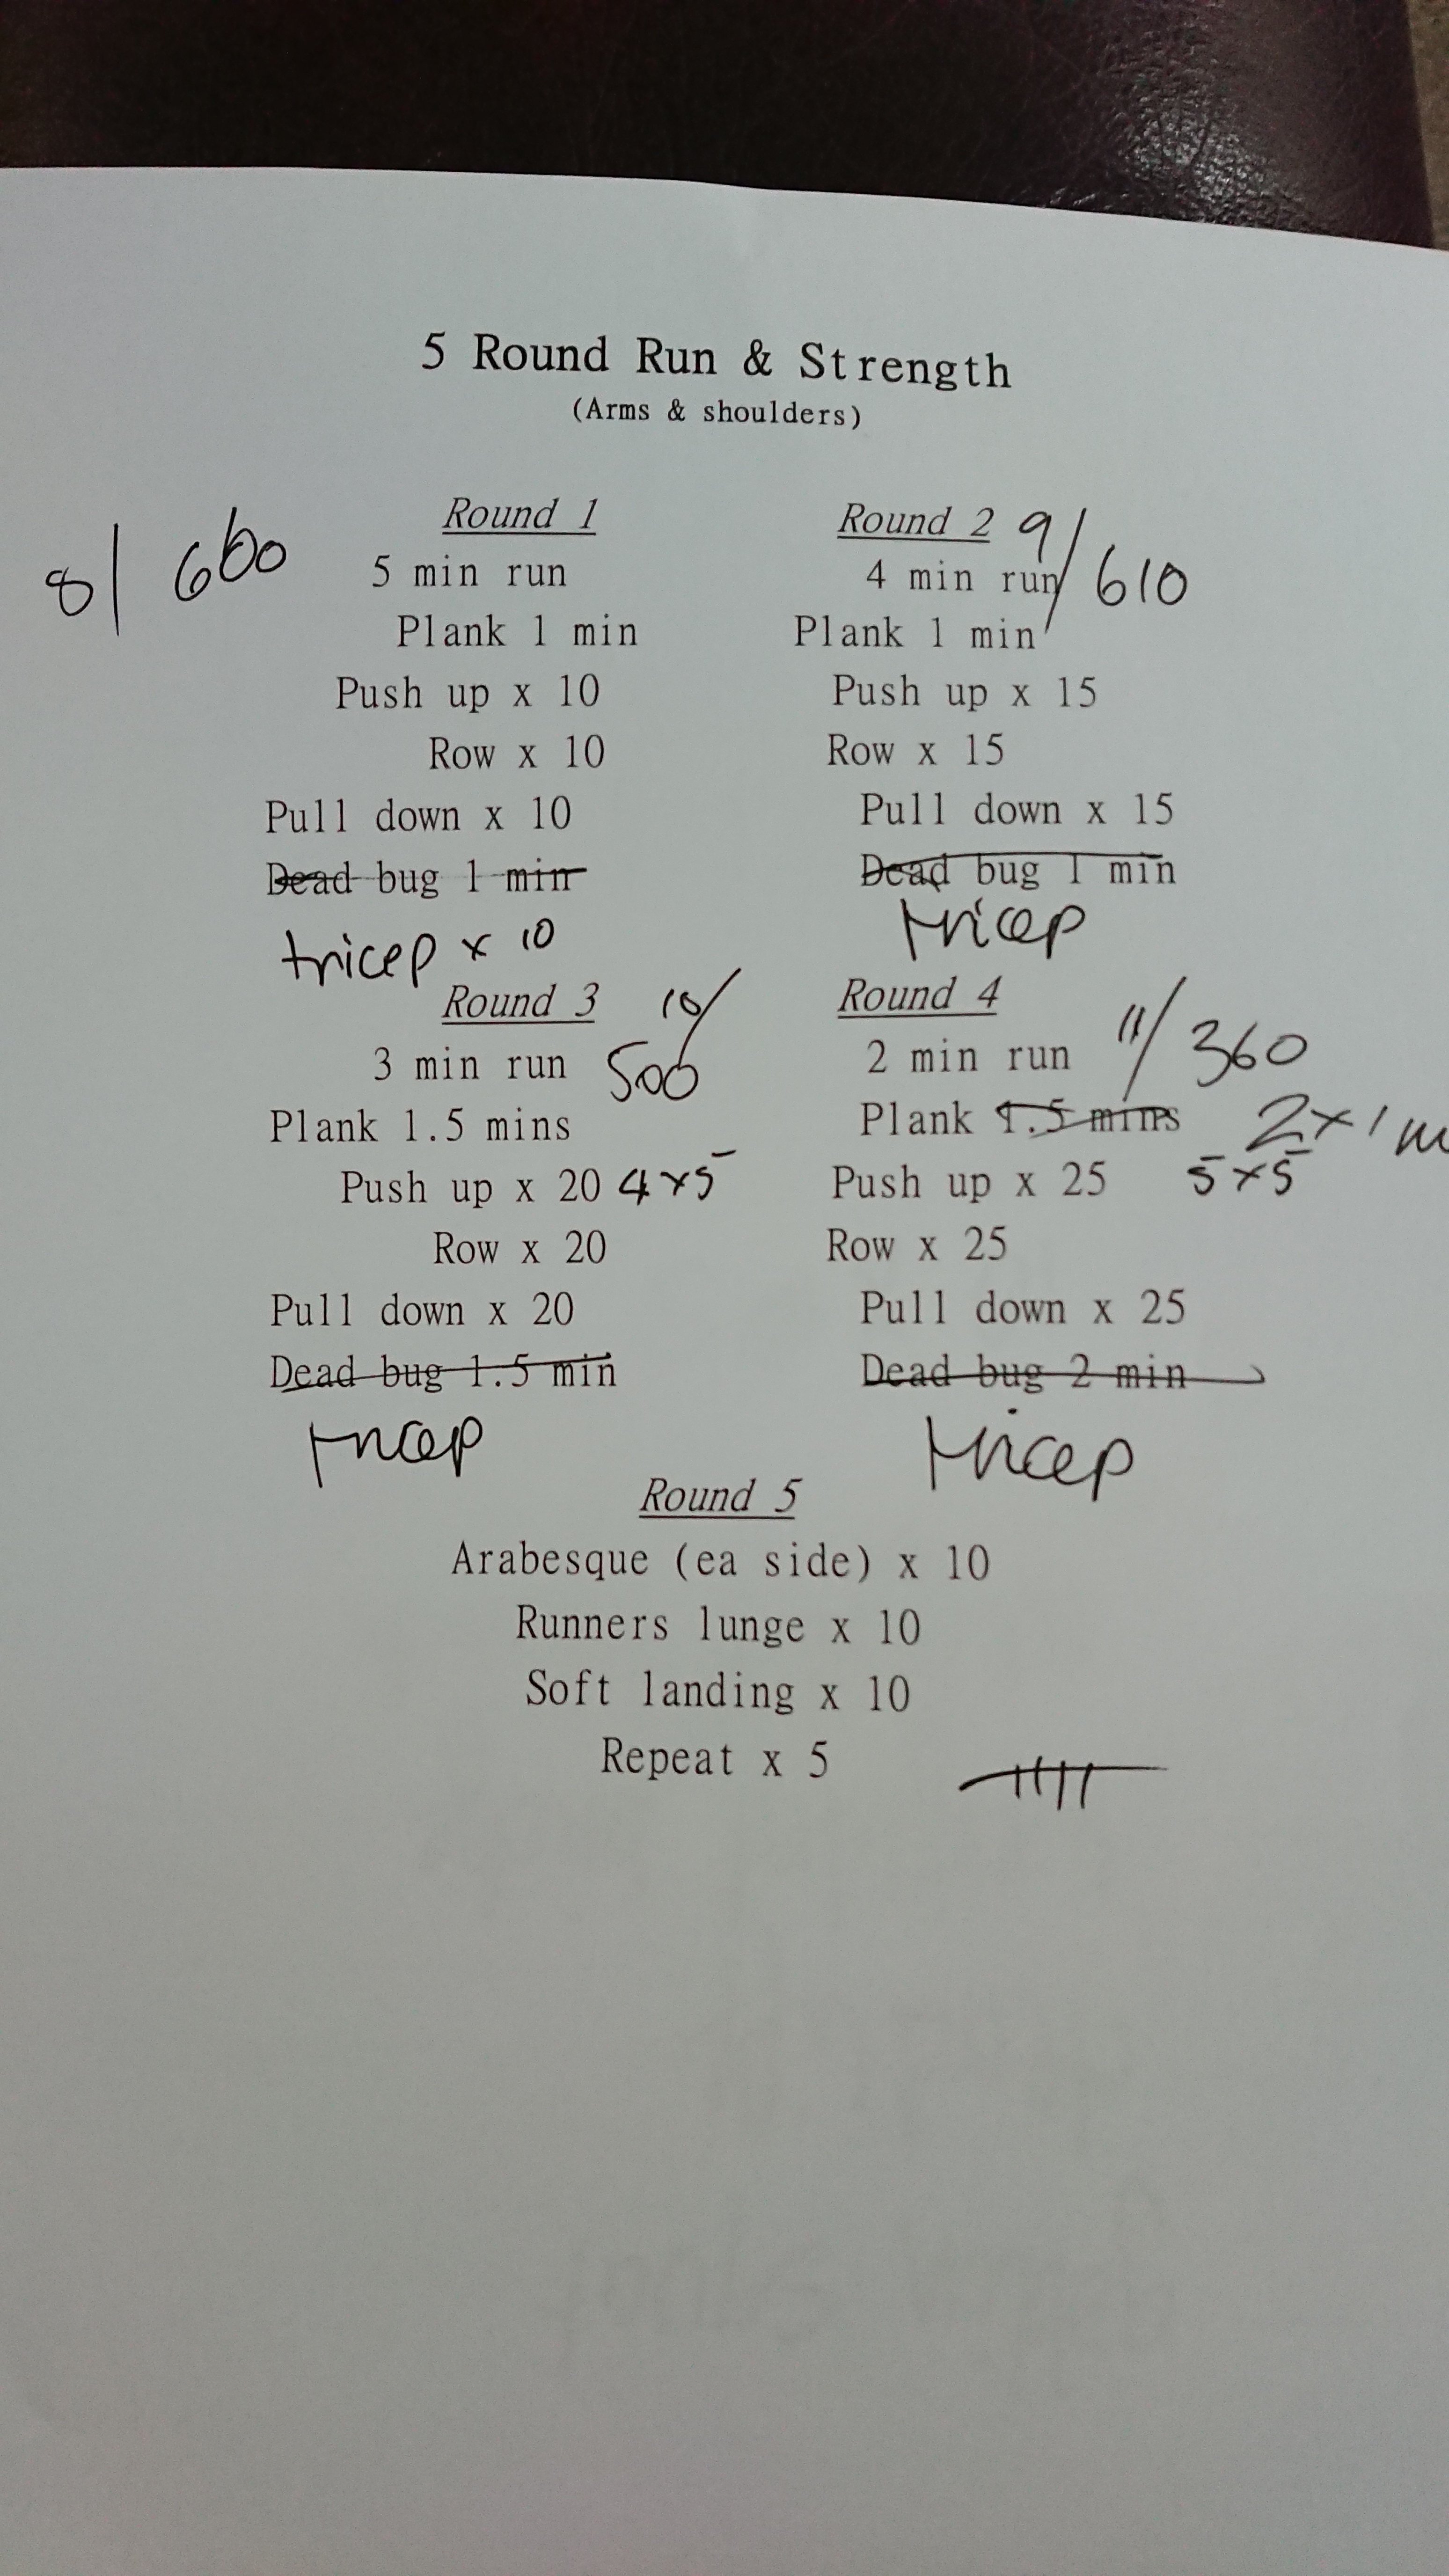 5 Round Run & Strength
(Arms & shoulders)
Round 1
8/ 660
5 min run
Plank 1 min
Push up x 10
Row x 10
Pull down x 10
Dead bug 1 min
tricep x 10
Round 2 9/
4 min run 610
Plank 1 min
Push up x 15
Row x 15
Pull down x 15
Dead bug 1 min
tricep
Round 3 10/
3 min run 500
Plank 1.5 mins
Push up x 20 4x5
Row x 20
Pull down x 20
Dead bug 1.5 min
tricep
Round 4
2 min run 11/ 360
Plank 1.5 mins 2x1m
Push up x 25 5x5
Row x 25
Pull down x 25
Dead bug 2 min
tricep
Round 5
Arabesque (ea side) x 10
Runners lunge x 10
Soft landing x 10
Repeat x 5